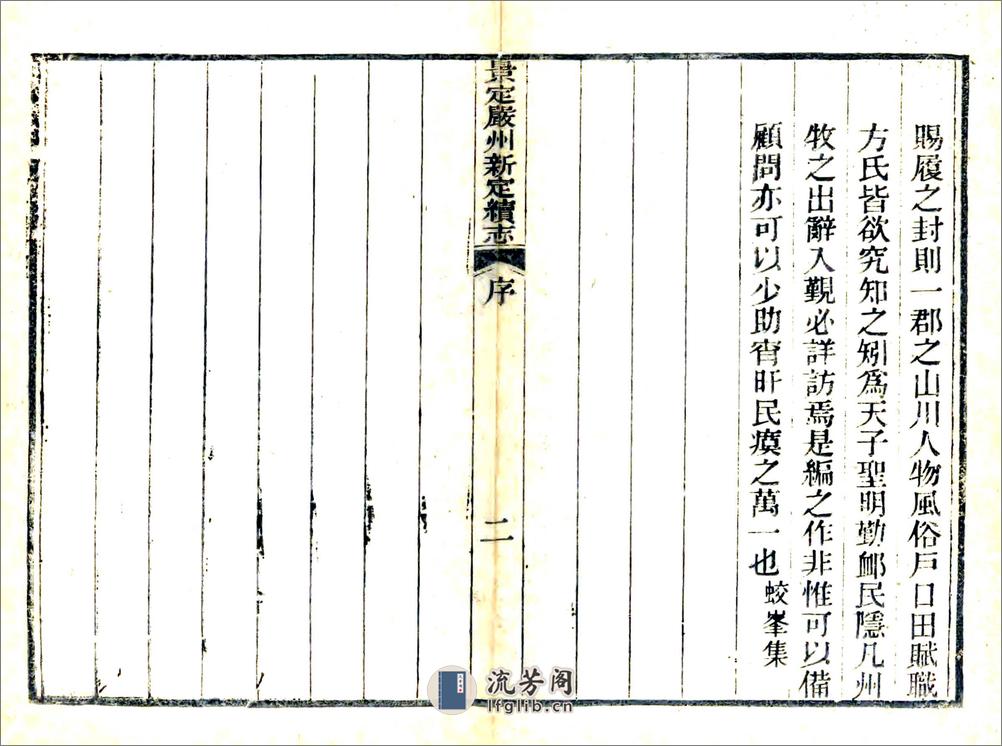 賜履之封則一郡之山川人物風俗戶口田賦職
方氏皆欲究知之矧爲天子聖明勤邺民隱凡州
牧之出辭入覲必詳訪焉是編之作非惟可以備
顧問亦可以少助宵旰民瘼之萬一也 蛟峯集
景定嚴州新定續志
序
二
流芳阁
lfglib.cn